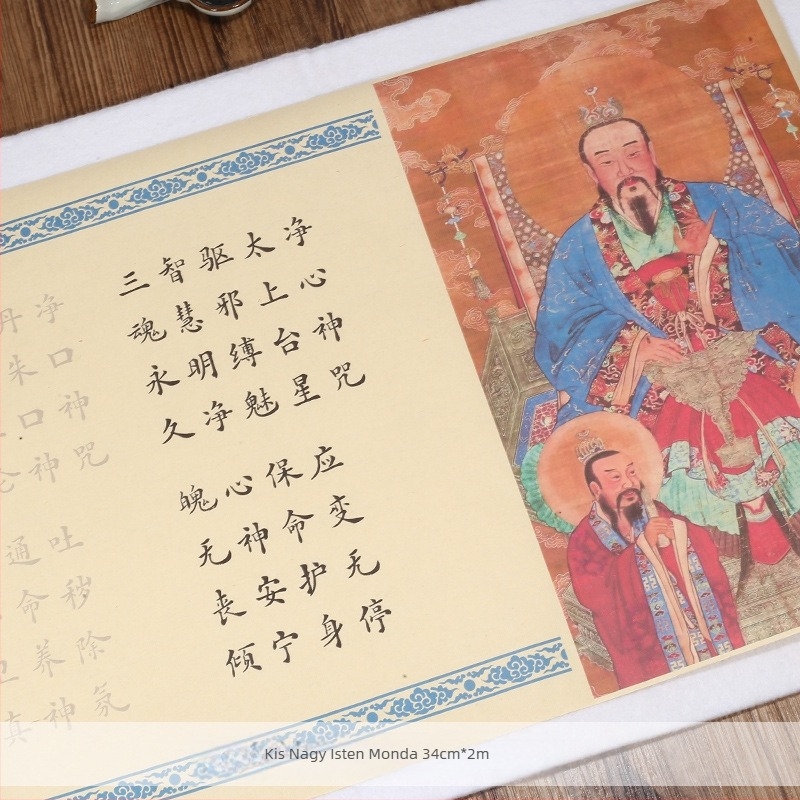 净心神咒
太上台星应变无停
驱邪缚魅保命护身
智慧明净心神安宁
三魂永久魄无丧倾
净口神咒
丹朱口神吐秽除氛
通命养神
真
Kis Nagy Isten Monda 34cm*2m